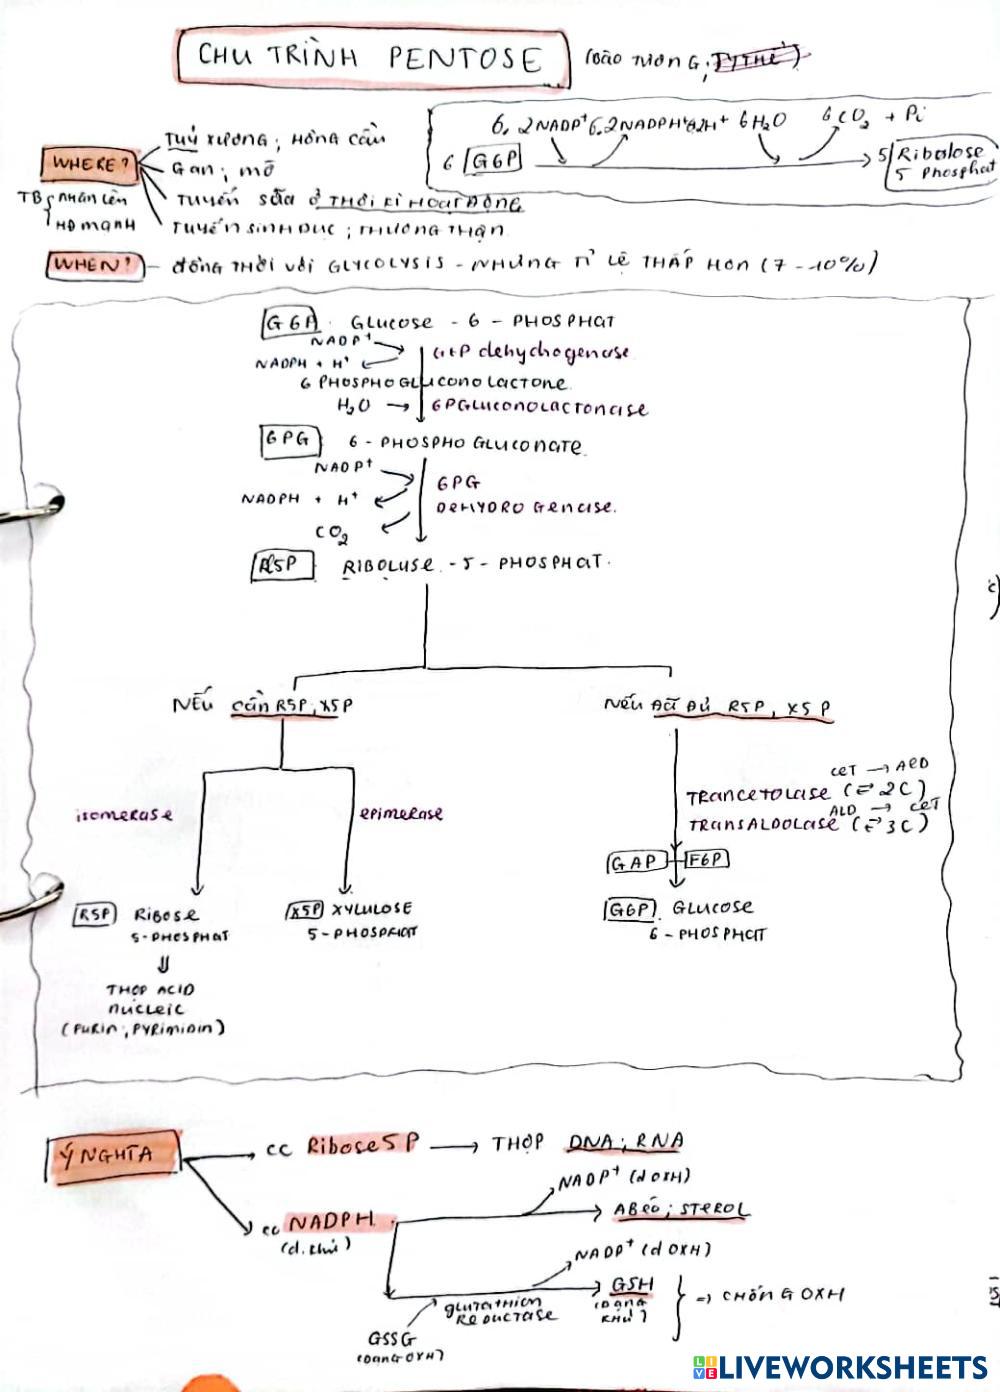 CHU TRÌNH PENTOSE (BÀO TƯƠNG;
6. 2NADP⁺ 6. 2NADPH 6H₂O 6CO₂ + Pi
6 G6P 5 Ribolose 5 Phosphat
WHERE?
TUỶ XƯƠNG; HỒNG CẦU
Gan; mỡ
TUYẾN SỮA Ở THỜI KÌ HOẠT ĐỘNG
TUYẾN SINH DỤC; THƯỢNG THẬN
TB NHÂN LÊN
HĐ MẠNH
WHEN? - ĐỒNG THỜI VỚI GLYCOLYSIS - NHƯNG TỈ LỆ THẤP HƠN (7 - 10%)
G6P. GLUCOSE - 6 - PHOSPHAT
NADP⁺
NADPH + H⁺
G6P dehydrogenase
6 PHOSPHOGLUCONOLACTONE
H₂O → 6PGLUCONOLACTONASE
6PG 6 - PHOSPHO GLUCONATE
NADP⁺
NADPH + H⁺
CO₂
6PG
DEHYDROGENASE.
R5P RIBOLUSE - 5 - PHOSPHAT.
NẾU CẦN R5P, X5P
NẾU ĐÃ ĐỦ R5P, X5P
isomerase
epimerase
CET → ALD
TRANCETOLASE (⇌ 2C)
ALD → CET
TRANSALDOLASE (⇌ 3C)
GAP + F6P
R5P RIBOSE
5 - PHOSPHAT
X5P XYLULOSE
5 - PHOSPHAT
G6P GLUCOSE
6 - PHOSPHAT
⇓
THỢP ACID
NUCLEIC
(PURIN; PYRIMIDIN)
Ý NGHĨA
CC Ribose 5P → THỢP DNA; RNA
CC NADPH
(d. khử)
NADP⁺ (d OXH)
ABÉO; STEROL
NADP⁺ (d OXH)
GSH
(DẠNG KHỬ)
⇒ CHỐNG OXH
glutathion
REDUCTASE
GSSG
(DẠNG OXH)
c)
LIVEWORKSHEETS